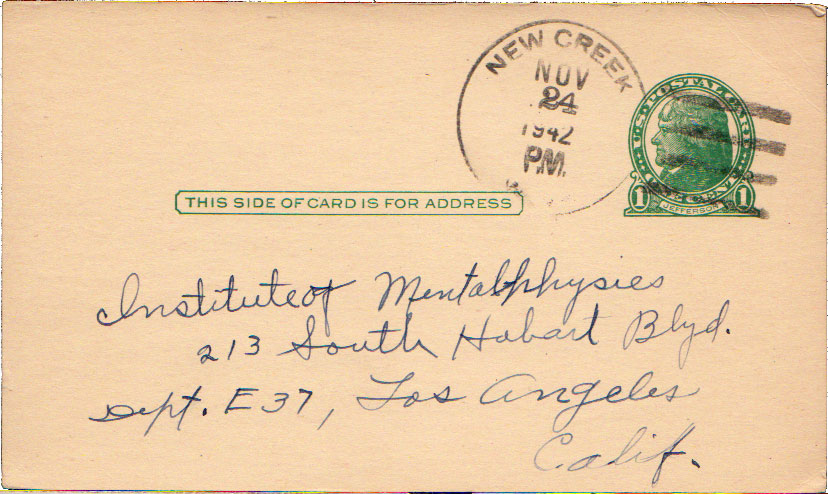 NEW CREEK
NOV
24
1942
P.M.
U.S. POSTAL CARD
ONE CENT
1 JEFFERSON 1
THIS SIDE OF CARD IS FOR ADDRESS
Institute of Mentalphysics
213 South Hobart Blvd.
Dept. E37, Los Angeles
Calif.